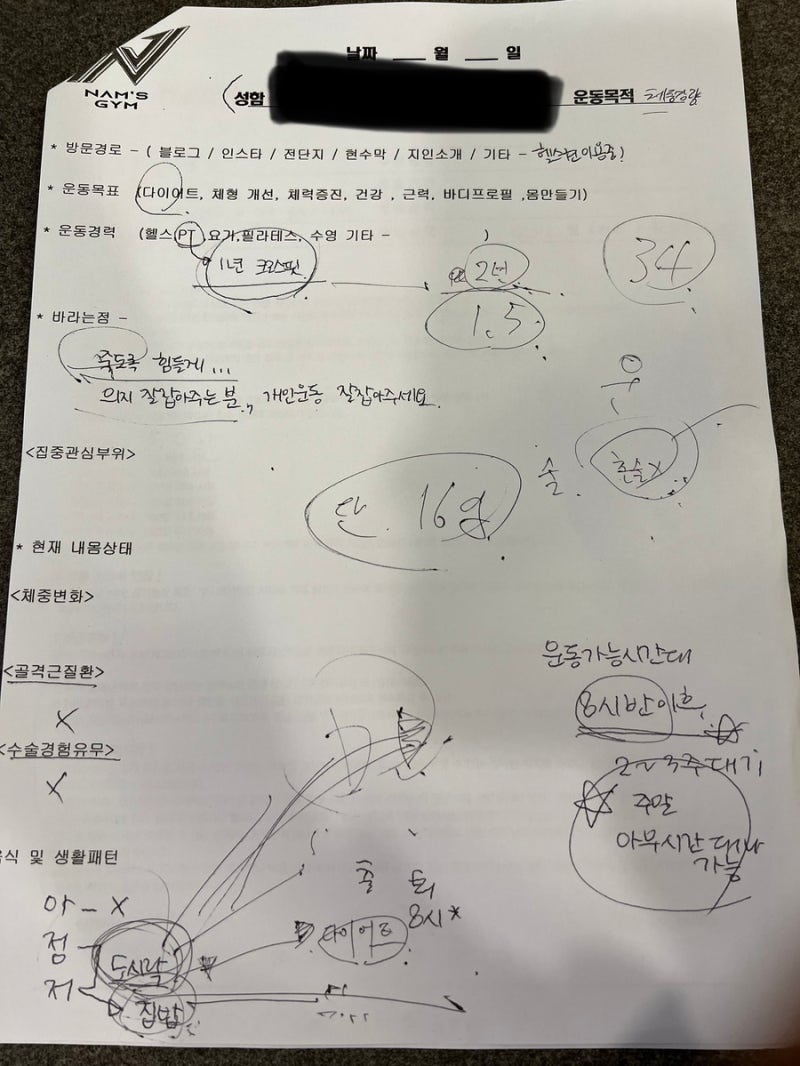 NAM'S
GYM
날짜 ___ 월 ___ 일
(성함
운동목적 체중감량
* 방문경로 - ( 블로그 / 인스타 / 전단지 / 현수막 / 지인소개 / 기타 - 헬스장이용중!
* 운동목표 (다이어트, 체형 개선, 체력증진, 건강 , 근력, 바디프로필 ,몸만들기)
* 운동경력 (헬스,PT ,요가,필라테스, 수영 기타 - )
1년 크로스핏
2년
34
1.5
* 바라는점 -
죽도록 힘들게...
의지 잘잡아주는분., 개인운동 잘잡아주세요.
<집중관심부위>
술. 혼술x
단. 16g
* 현재 내몸상태
<체중변화>
<골격근질환>
X
<수술경험유무>
X
운동가능시간대
8시반이후,
2~3주대기
주말
아무시간대나
가능
식 및 생활패턴
아 - X
출 퇴
8시*
점
도시락
다이어트
저
집밥